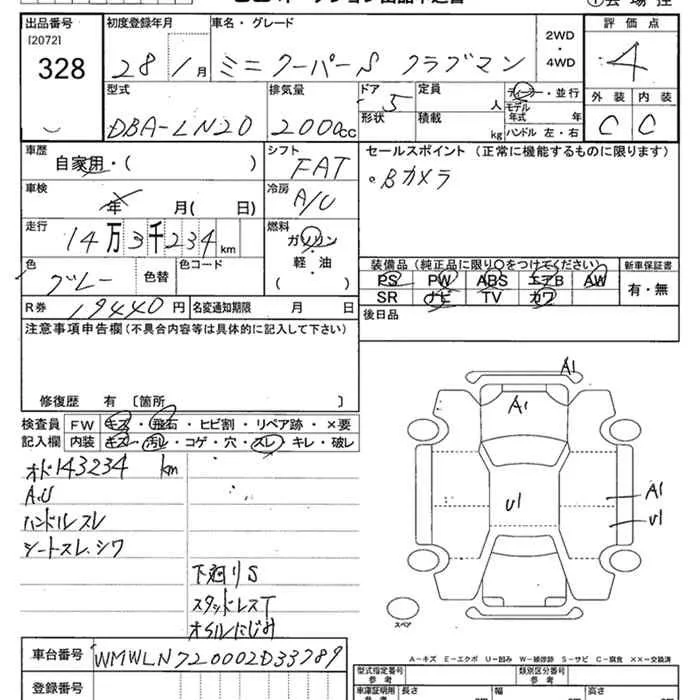 出品番号 初度登録年月 車名・グレード 評価点
[2072] 2WD
328 28/1月 ミニクーパーS クラブマン ・ 4
4WD
型式 排気量 ドア 5 定員 人 ディーラー・並行 外装 内装
モデル
DBA-LN20 2000cc 形状 積載 kg 年式 年 C C
ハンドル 左・右
車歴 自家用・( ) シフト FAT セールスポイント (正常に機能するものに限ります)
車検 年 月( 日) 冷房 A/U 。Bカメラ
走行 14万3千234km 燃料 ガソリン
軽・油
( )
色 グレー 色替 色コード
装備品 (純正品に限り○をつけてください) 新車保証書
PS PW ABS エアB AW 有・無
SR ナビ TV カワ
R券 19440円 名変通知期限 月 日 後日品
注意事項申告欄(不具合内容等は具体的に記入して下さい)
修復歴 有 〔箇所 〕
検査員 FW キズ・飛石・ヒビ割・リペア跡・×要
記入欄 内装 キズ・汚れ・コゲ・穴・スレ・キレ・破レ
オド143234km
A.U
ハンドルスレ
シートスレ、シワ
下廻りS
スタッドレスT
オイルにじみ
A1
A1
U1
A1
U1
スペア
車台番号 WMWLN720002D33789
登録番号
A-キズ E-エクボ U-凹み W-補修跡 S-サビ C-腐食 ××-交換済
型式指定番号 類別区分番号
参考 参考
車庫証明用 長さ 幅 高さ